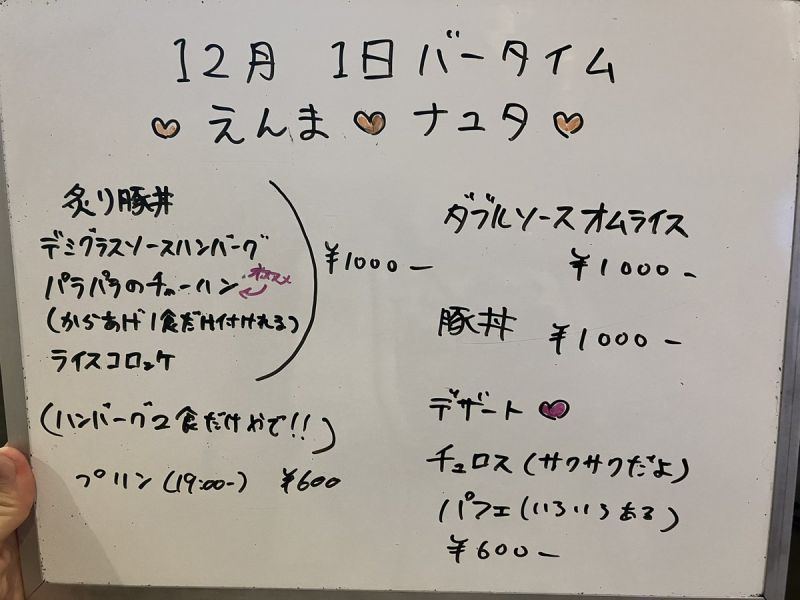 12月 1日 バータイム
えんま ナユタ
炙り豚丼
デミグラスソースハンバーグ
パラパラのチャーハン オススメ
(からあげ1食だけ付けれる)
ライスコロッケ
¥1000-
(ハンバーグ2食だけやで!!)
プリン(19:00-) ¥600
ダブルソースオムライス
¥1000-
豚丼 ¥1000-
デザート
チュロス(サクサクだよ)
パフェ(いろいろある)
¥600-